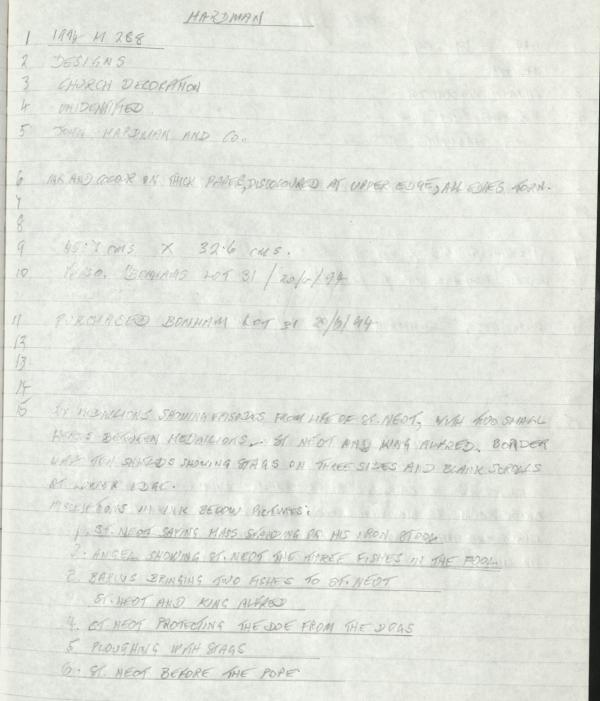 HARDMAN
1 1994 M 288
2 DESIGNS
3 CHURCH DECORATION
4 UNIDENTIFIED
5 JOHN HARDMAN AND CO.
6 INK AND COLOUR ON THICK PAPER, DISCOLOURED AT UPPER EDGE, ALL EDGES TORN.
7
8
9 CMS X 32.6 CMS.
10 BONHAMS LOT 31 / 94
11 PURCHASED BONHAM LOT 31 94
12
13
14
15 MEDALLIONS SHOWING EPISODES FROM LIFE OF ST. NEOT, WITH TWO SMALL
BETWEEN MEDALLIONS - ST NEOT AND KING ALFRED. BORDER
WITH TEN SHIELDS SHOWING STAGS ON THREE SIDES AND BLANK SCROLLS
AT LOWER EDGE.
INSCRIPTIONS IN INK BELOW PICTURES:
1. ST. NEOT SAYING MASS STANDING ON HIS IRON STOOL
2. ANGEL SHOWING ST. NEOT THE THREE FISHES IN THE POOL
BARIUS BRINGING TWO FISHES TO ST. NEOT
ST. NEOT AND KING ALFRED
4. ST NEOT PROTECTING THE DOE FROM THE DOGS
5 PLOUGHING WITH STAGS
6. ST. NEOT BEFORE THE POPE